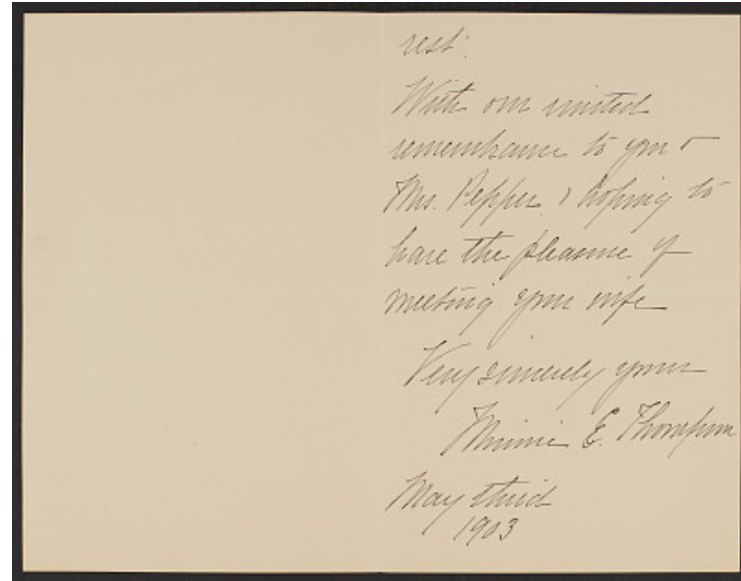 rest.
With our united
remembrance to you &
Mrs. Pepper, & hoping to
have the pleasure of
meeting your wife
Very sincerely yours
Minnie E. Thompson
May third
1903